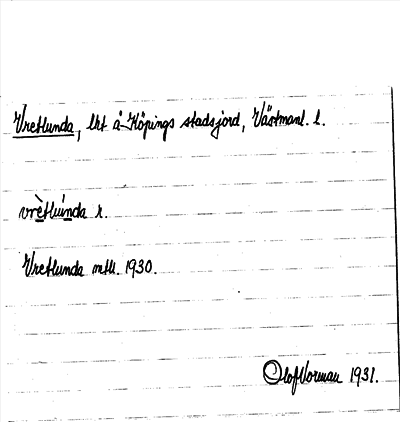 Vretlunda, lht å Köpings stadsjord, Västmanl. l.
vrètlúnda r.
Vretlunda mtl. 1930.
Olof Norman 1931.